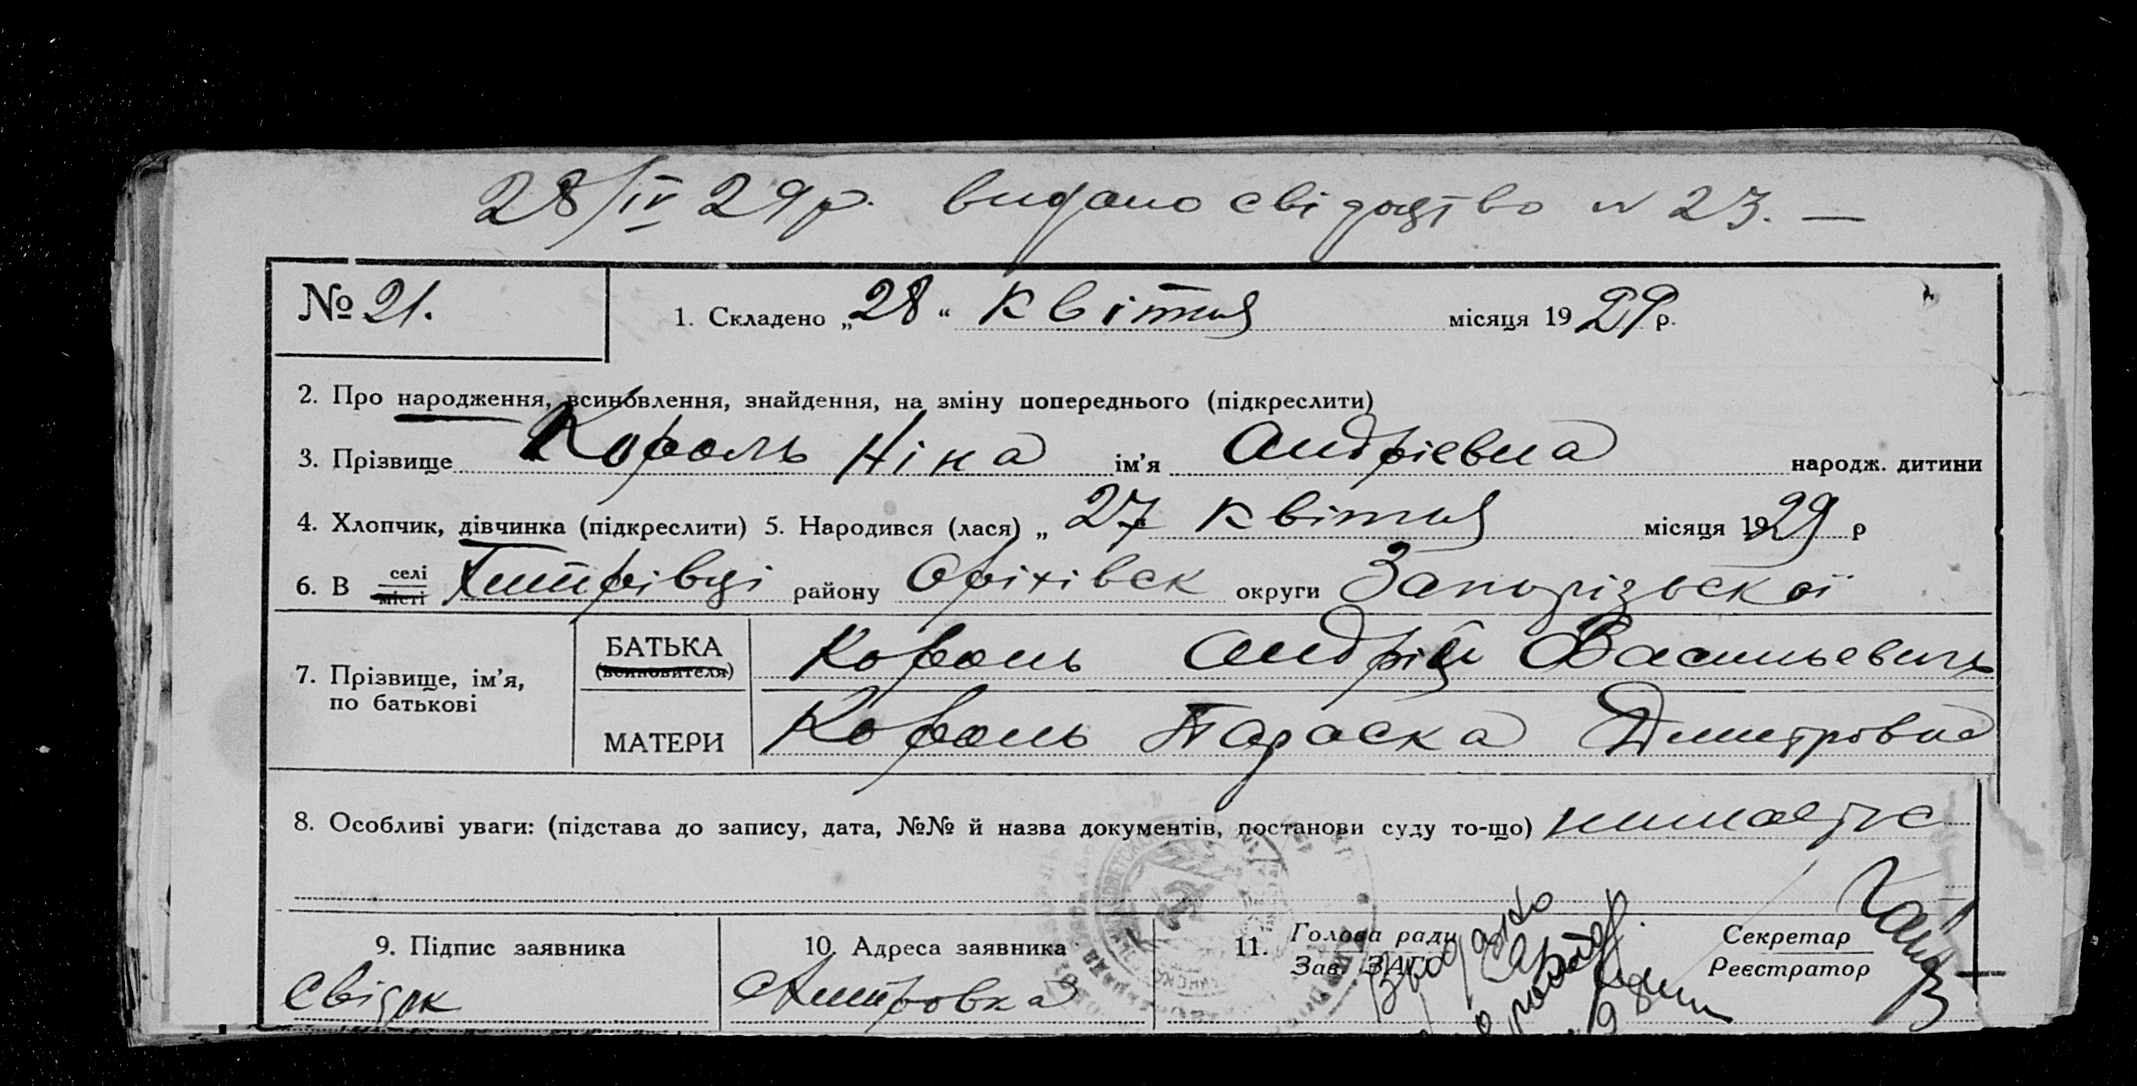 28/IV 29р. видано свідоцтво № 23. —
№ 21.
1. Складено „28“ квітня місяця 1929 р.
2. Про народження, всиновлення, знайдення, на зміну попереднього (підкреслити)
3. Прізвище Король Ніна ім’я Андрієвна народж. дитини
4. Хлопчик, дівчинка (підкреслити) 5. Народився (лася) „ 27 квітня місяця 1929 р
6. В селі місті району Оріхівск округи Запорізьскої
7. Прізвище, ім’я, по батькові
БАТЬКА (всиновителя) Король Андрій Васильевичь
МАТЕРИ Король Параска Дмитровна
8. Особливі уваги: (підстава до запису, дата, №№ й назва документів, постанови суду то-що)
9. Підпис заявника
свідок
10. Адреса заявника
11. Голова ради
Зав. ЗАГС
Секретар
Реєстратор